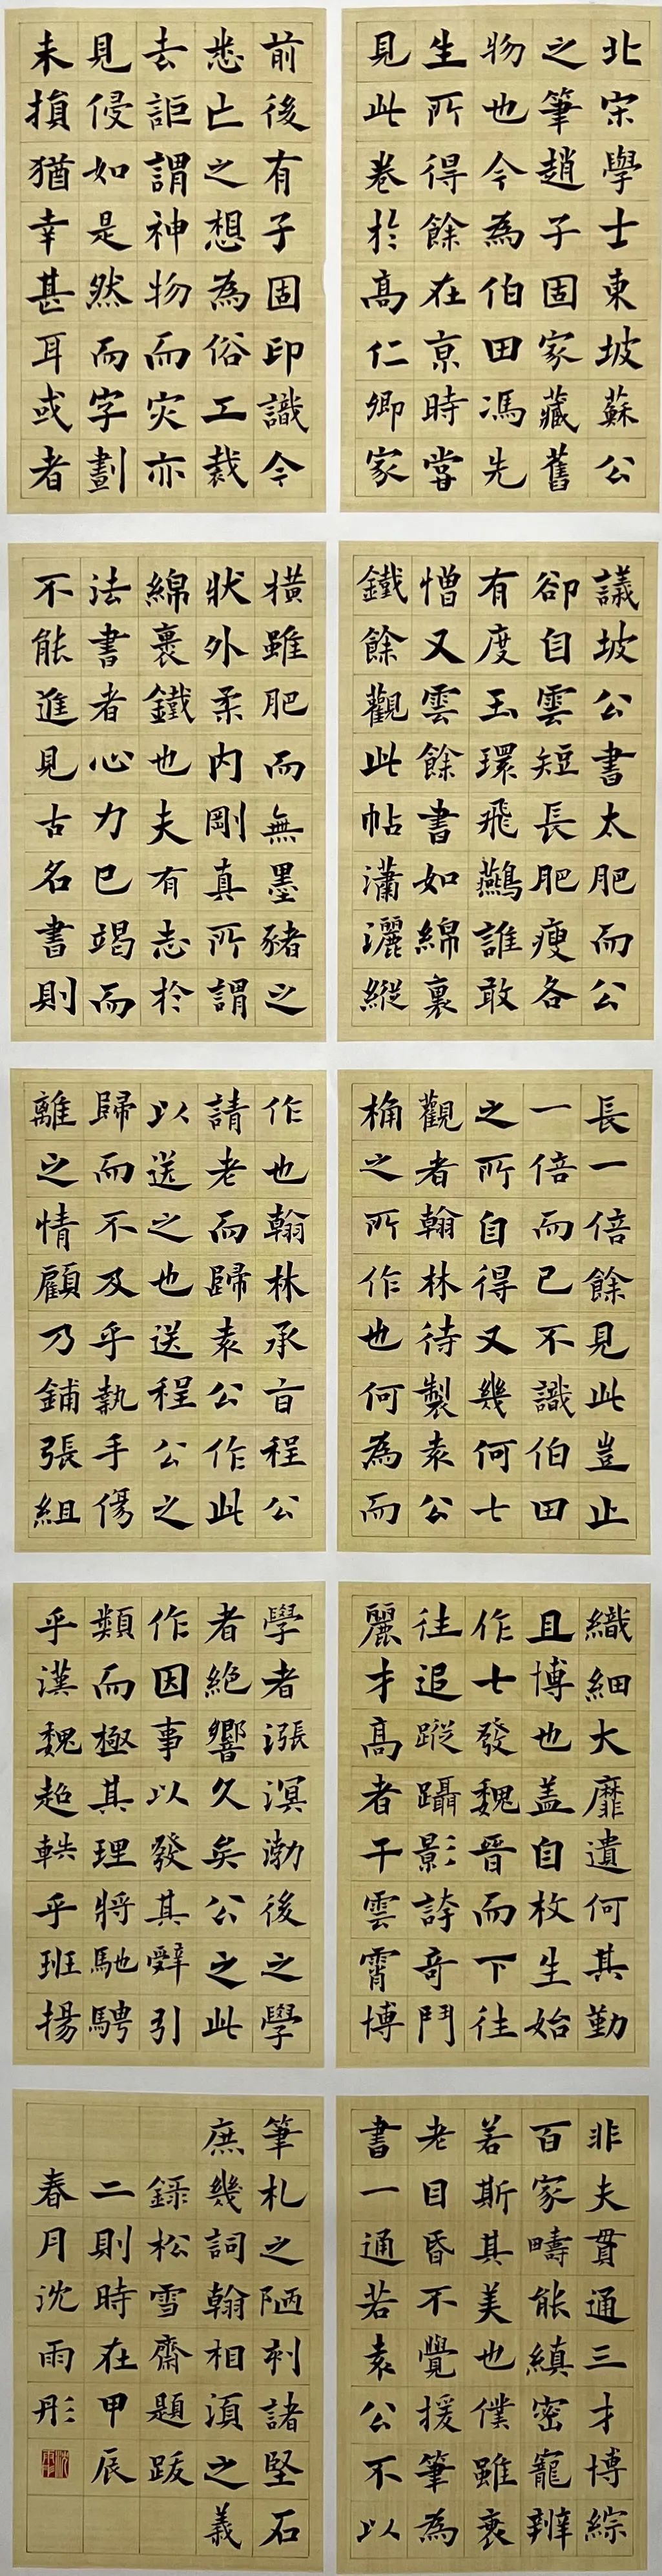 北宋學士東坡蘇公
之筆趙子固家藏舊
物也今為伯田馮先
生所得餘在京時嘗
見此卷於高仁卿家
前後有子固印識今
悉亡之想為俗工裁
去詎謂神物而災亦
見侵如是然而字劃
未損猶幸甚耳或者
議坡公書太肥而公
卻自雲短長肥瘦各
有度玉環飛鷰誰敢
憎又雲餘書如綿裏
鐵餘觀此帖瀟灑縱
橫雖肥而無墨豬之
狀外柔内剛真所謂
綿裹鐵也夫有志於
法書者心力已竭而
不能進見古名書則
長一倍餘見此豈止
一倍而已不識伯田
之所自得又幾何七
觀者翰林待製袁公
桷之所作也何為而
作也翰林承旨程公
請老而歸袁公作此
以送之也送程公之
歸而不及乎執手傷
離之情顧乃鋪張組
織細大靡遺何其勤
且博也盖自枚生始
作七發魏晉而下往
往追蹤躡影誇奇鬥
麗才高者干雲霄博
學者漲溟渤後之學
者絶響久矣公之此
作因事以發其辭引
類而極其理將馳騁
乎漢魏超軼乎班揚
非夫貫通三才博綜
百家疇能縝密寵辨
若斯其美也僕雖衰
老目昏不覺援筆為
書一通若袁公不以
筆札之陋刺諸堅石
庶幾詞翰相湏之義
録松雪齋題跋
二則時在甲辰
春月沈雨彤